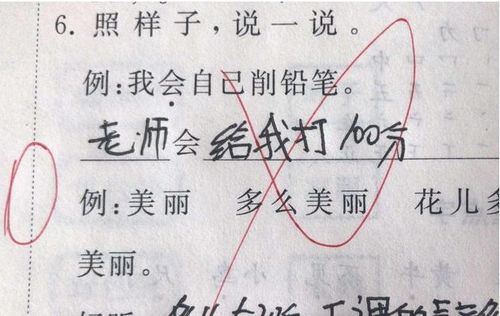 6. 照样子，说一说。
例：我会自己削铅笔。
老师会给我打100分
例：美丽 多么美丽 花儿多
美丽。